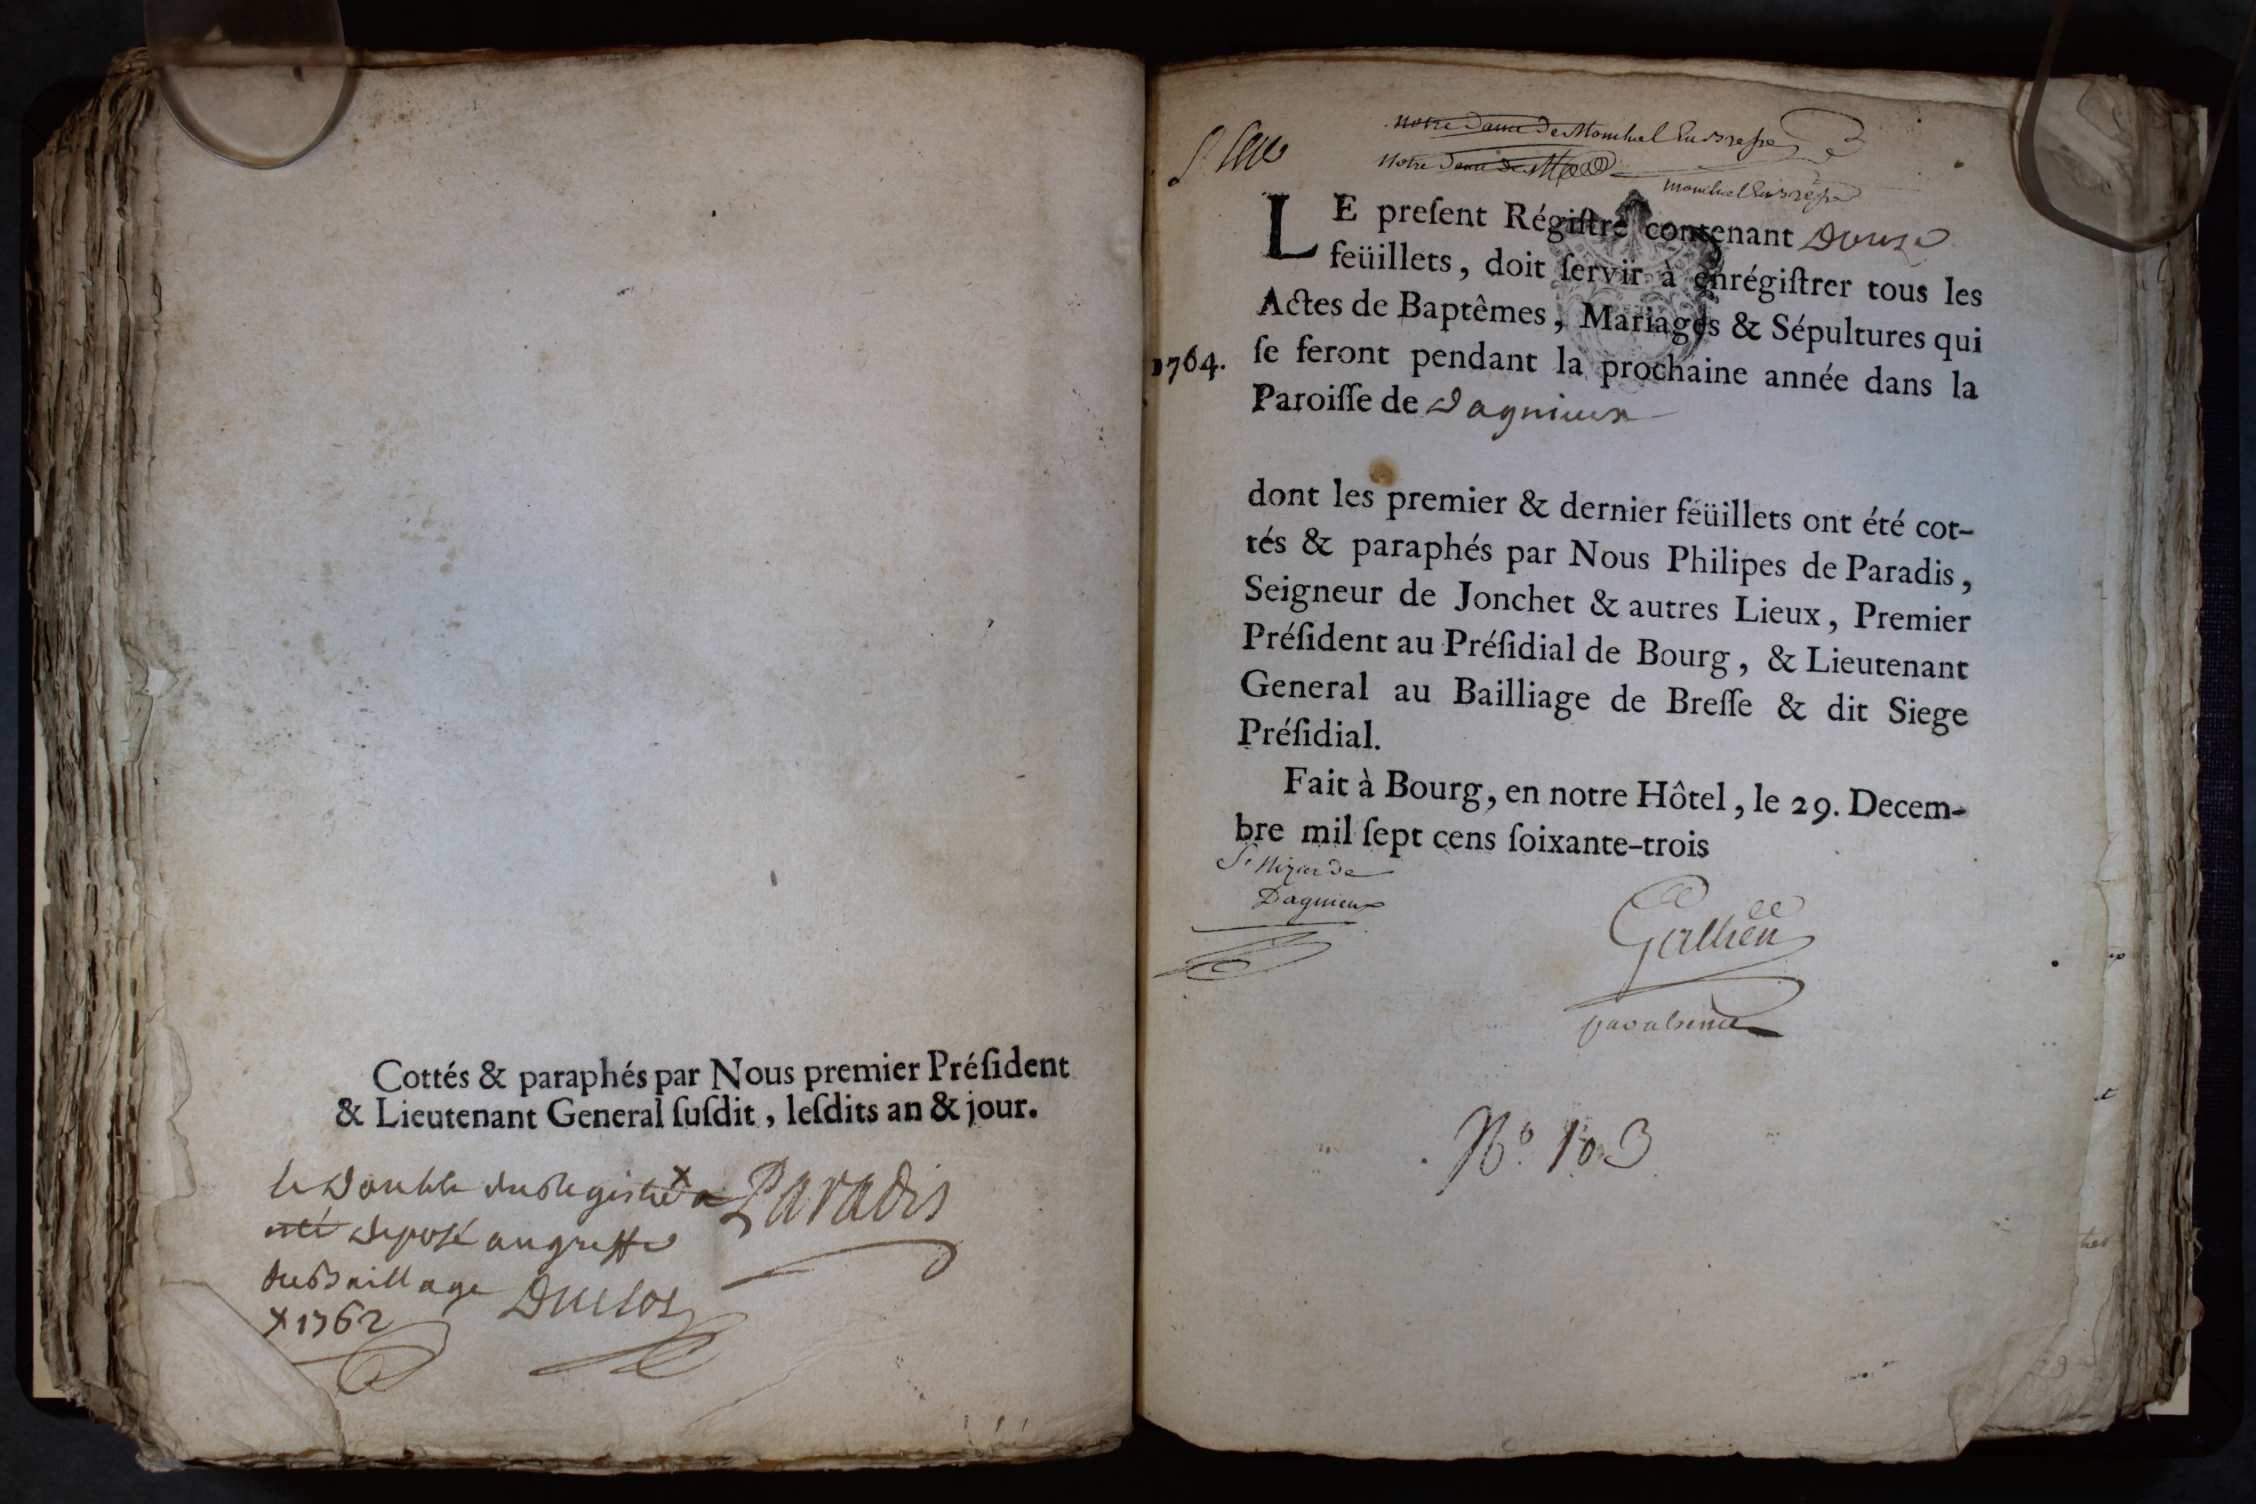 Cottés & paraphés par Nous premier Préſident
& Lieutenant General ſuſdit, leſdits an & jour.
le Double du Registre x a Paradis
eté deposé au greffe
du Baillage Duclos
x 1762
Notre Dame de Montluel En Bresse
Notre Dame de
Montluel En Bresse
LE preſent Régiſtre contenant Douze
feüillets, doit ſervir à enrégiſtrer tous les
Actes de Baptêmes, Mariages & Sépultures qui
1764. ſe feront pendant la prochaine année dans la
Paroiſſe de Dagnieux
dont les premier & dernier feüillets ont été cot-
tés & paraphés par Nous Philipes de Paradis,
Seigneur de Jonchet & autres Lieux, Premier
Préſident au Préſidial de Bourg, & Lieutenant
General au Bailliage de Breſſe & dit Siege
Préſidial.
Fait à Bourg, en notre Hôtel, le 29. Decem-
bre mil ſept cens ſoixante-trois
St Nizier de
Dagnieux
Gallien
par absence
No. 103